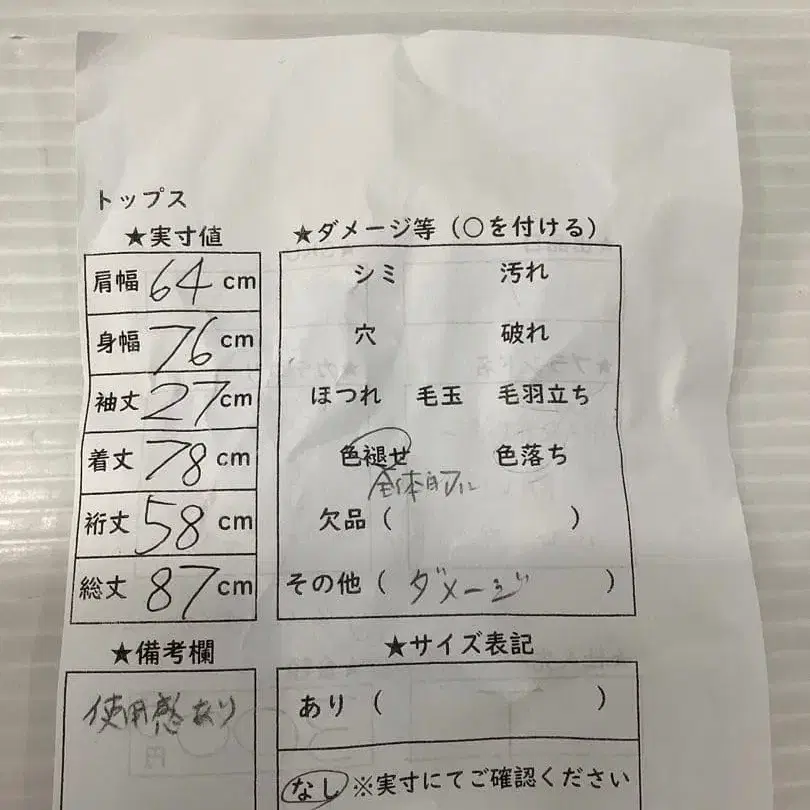 トップス
★実寸値
肩幅 64 cm
身幅 76 cm
袖丈 27 cm
着丈 78 cm
裄丈 58 cm
総丈 87 cm
★ダメージ等（○を付ける）
シミ 汚れ
穴 破れ
ほつれ 毛玉 毛羽立ち
色褪せ 色落ち
全体的に
欠品（ ）
その他（ ダメージ ）
★備考欄
使用感あり
★サイズ表記
あり（ ）
なし ※実寸にてご確認ください